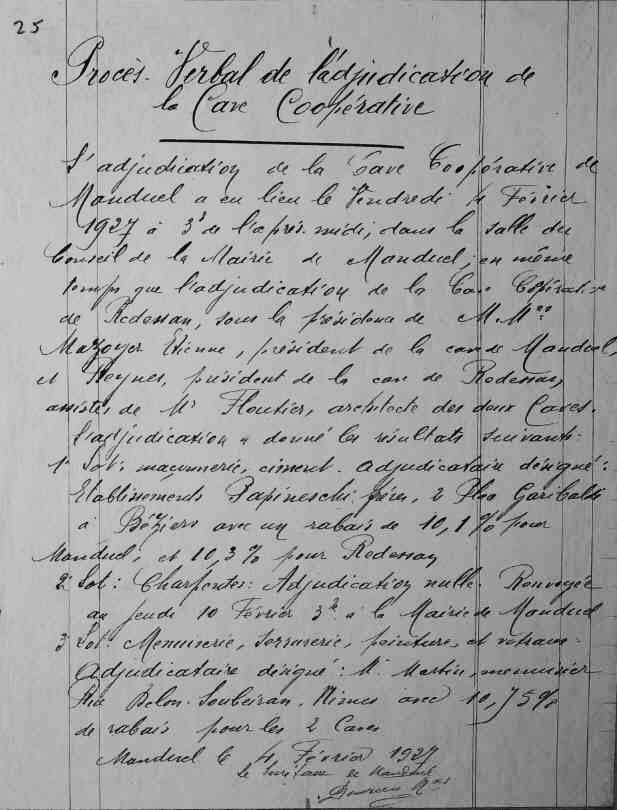 25
Procès-Verbal de l'adjudication de
la Cave Coopérative
L'adjudication de la Cave Coopérative de
Manduel a eu lieu le Vendredi 4 Février
1927 à 3h de l'après-midi, dans la salle du
Conseil de la Mairie de Manduel, en même
temps que l'adjudication de la Cave Coopérative
de Redessan, sous la présidence de M.Mrs
Mazoyer Etienne, président de la cave de Manduel,
et Reynes, président de la cave de Redessan,
assistés de Mr Floutier, architecte des deux Caves.
L'adjudication a donné les résultats suivants:
1er Lot: maçonnerie, ciment. adjudicataire désigné:
Etablissements Papineschi frères, 2 Place Garibaldi
à Béziers avec un rabais de 10,1% pour
Manduel, et 10,3% pour Redessan
2e Lot: Charpentes: Adjudication nulle. Renvoyée
au jeudi 10 Février 3h à la Mairie de Manduel
3e Lot: Menuiserie, serrurerie, peinture, et vitraux:
Adjudicataire désigné: M. Martin, menuisier
Rue Belon-Soubeiran, Nîmes avec 10,75%
de rabais pour les 2 Caves
Manduel le 4 Février 1927
Le Secrétaire de Manduel